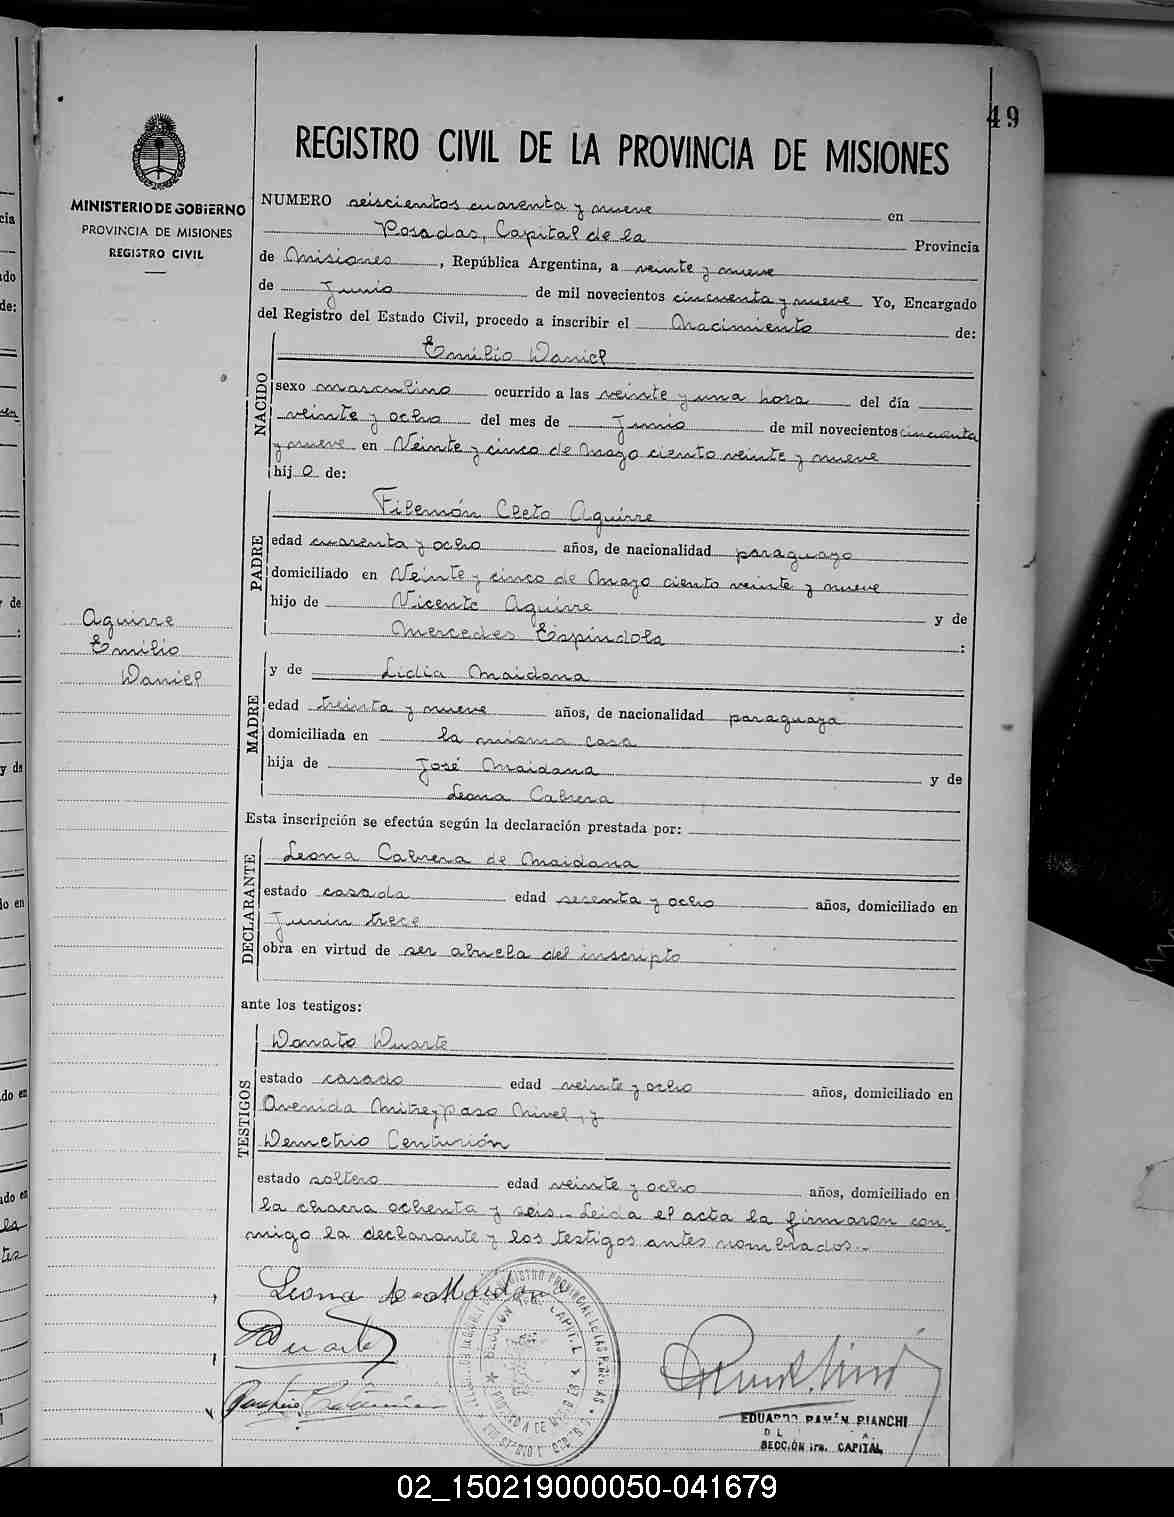 49
REGISTRO CIVIL DE LA PROVINCIA DE MISIONES
MINISTERIO DE GOBIERNO
PROVINCIA DE MISIONES
REGISTRO CIVIL
NUMERO seiscientos cuarenta y nueve en
Posadas, Capital de la Provincia
de Misiones, República Argentina, a veinte y nueve
de Junio de mil novecientos cincuenta y nueve Yo, Encargado
del Registro del Estado Civil, procedo a inscribir el Nacimiento de:
NACIDO
Emilio Daniel
sexo masculino ocurrido a las veinte y una hora del día
veinte y ocho del mes de Junio de mil novecientos cincuenta
y nueve en Veinte y cinco de Mayo ciento veinte y nueve
hijo de:
PADRE
Filemón Cleto Aguirre
edad cuarenta y ocho años, de nacionalidad paraguayo
domiciliado en Veinte y cinco de Mayo ciento veinte y nueve
hijo de Vicente Aguirre y de
Mercedes Espíndola :
Aguirre
Emilio
Daniel
MADRE
y de Lidia Maidana
edad treinta y nueve años, de nacionalidad paraguaya
domiciliada en la misma casa
hija de José Maidana y de
Leona Cabrera
Esta inscripción se efectúa según la declaración prestada por:
DECLARANTE
Leona Cabrera de Maidana
estado casada edad sesenta y ocho años, domiciliado en
Junin trece
obra en virtud de ser abuela del inscripto
ante los testigos:
TESTIGOS
Donato Duarte
estado casado edad veinte y ocho años, domiciliado en
Avenida Mitre y paso Nivel, y
Demetrio Centurión
estado soltero edad veinte y ocho años, domiciliado en
la chacra ochenta y seis.- Leida el acta la firmaron con-
migo la declarante y los testigos antes nombrados.-
Leona de Maidana
DDuarte
EDUARDO RAMÓN BIANCHI
SECCIÓN 1ra. CAPITAL
02_150219000050-041679